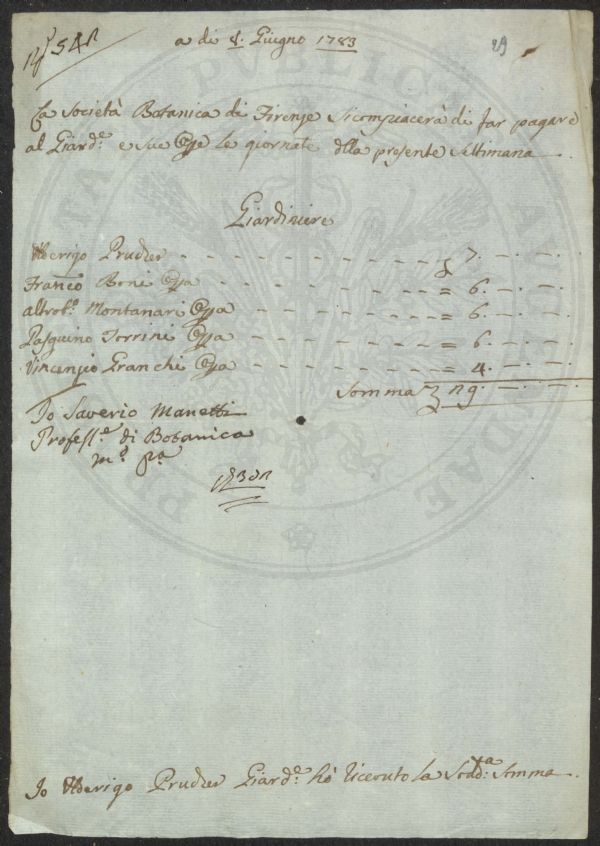 a di 8. Giugno 1783
29
La Società Botanica di Firenze si compiacerà di far pagare
al Giard.e e sue Opre le giornate della presente Settimana
Giardiniere
Prucker 7.
Franco Boni Opra = 6.
Montanari Opra = 6.
Pasquino Torrini Opra = 6.
Vincenzio Franchi Opra = 4.
Somma 29.
Io Saverio Manetti
Profess.e di Botanica
m.o p.a
Io Prucker Giard.e hò riceuto la Sudd.a Somma